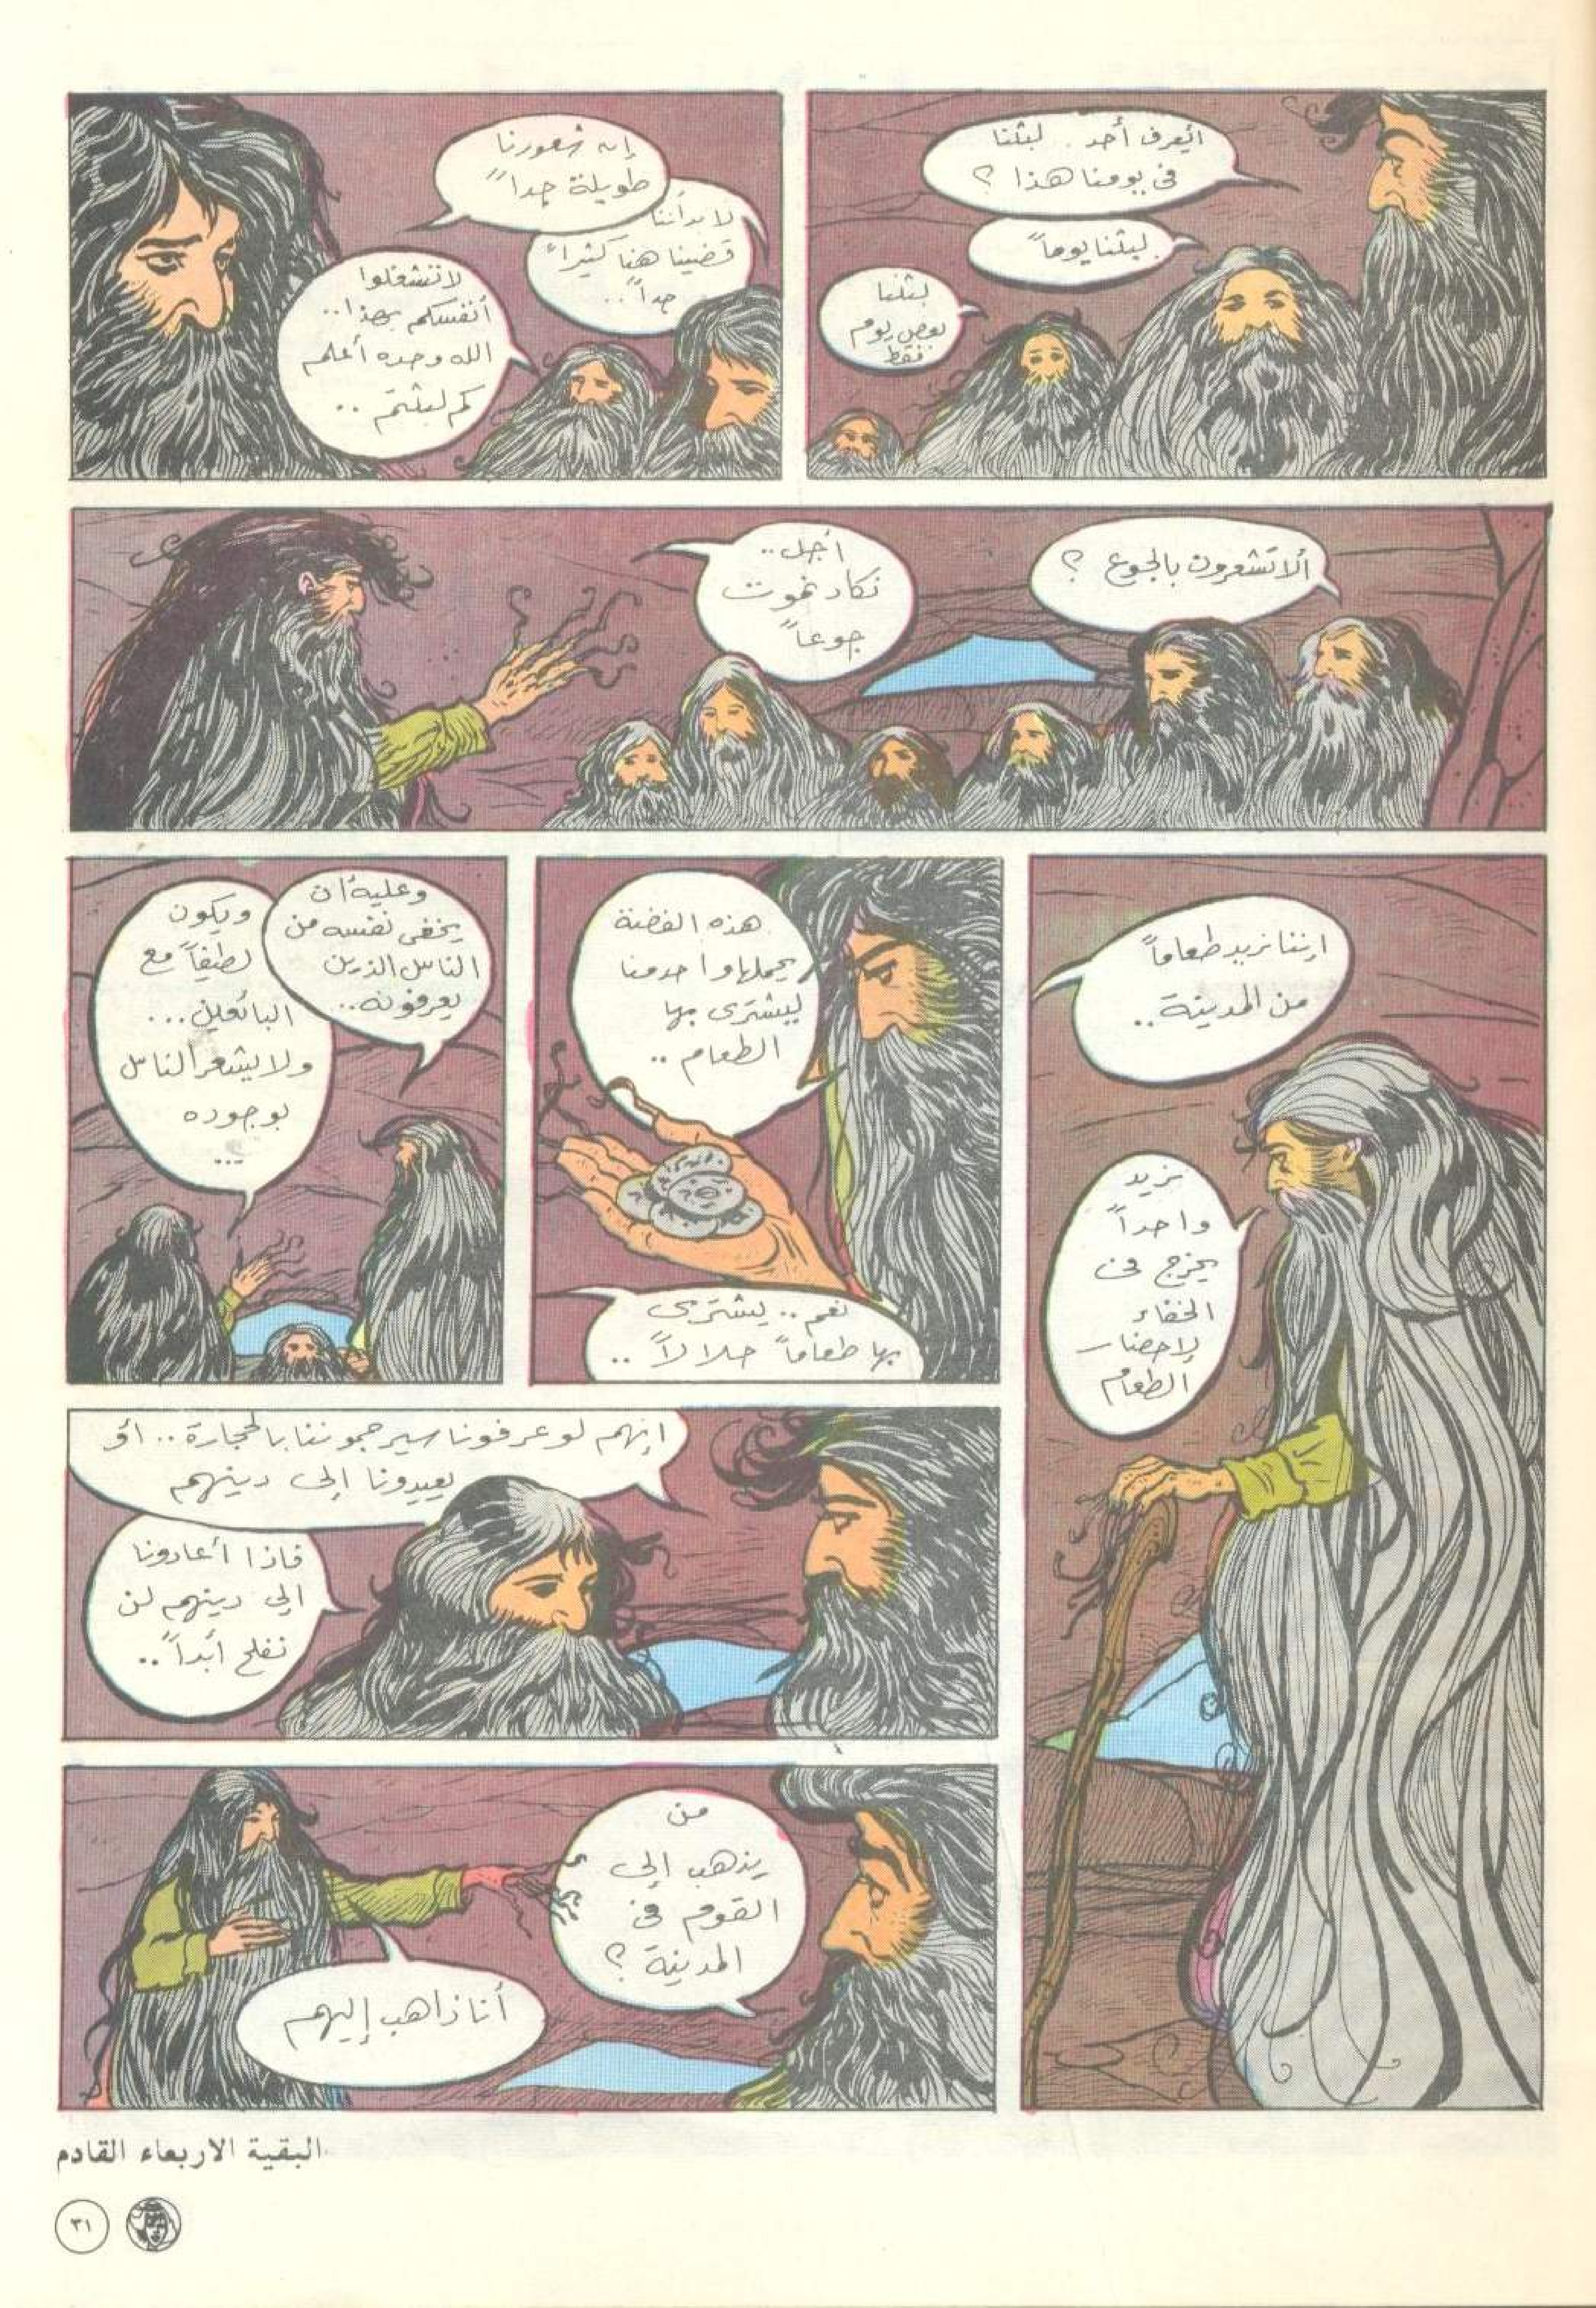 أيعرف أحد .. لبثنا
في يومنا هذا ؟
لبثنا يوماً
لبثنا
بعض يوم
فقط
إن شعورنا
طويلة جداً
لا بد أننا
قضينا هنا كثيراً
جداً ..
لا تشغلوا
أنفسكم بهذا ..
الله وحده أعلم
كم لبثتم ..
ألا تشعرون بالجوع ؟
أجل ..
نكاد نموت
جوعاً
إننا نريد طعاماً
من المدينة ..
نريد
واحداً
يخرج في
الخفاء
لإحضار
الطعام
هذه الفضة
يحملها واحد منا
ليشترى بها
الطعام ..
نعم .. ليشترى
بها طعاماً حلالاً ..
وعليه أن
يخفى نفسه من
الناس الذين
يعرفونه ..
ويكون
لطيفاً مع
البائعين ...
ولا يشعر الناس
بوجوده
...
انهم لو عرفونا سيرجموننا بالحجارة .. أو
يعيدونا إلى دينهم
فاذا أعادونا
الى دينهم لن
نفلح أبداً ..
من
يذهب إلى
القوم في
المدينة ؟
أنا ذاهب إليهم
البقية الاربعاء القادم
٣١